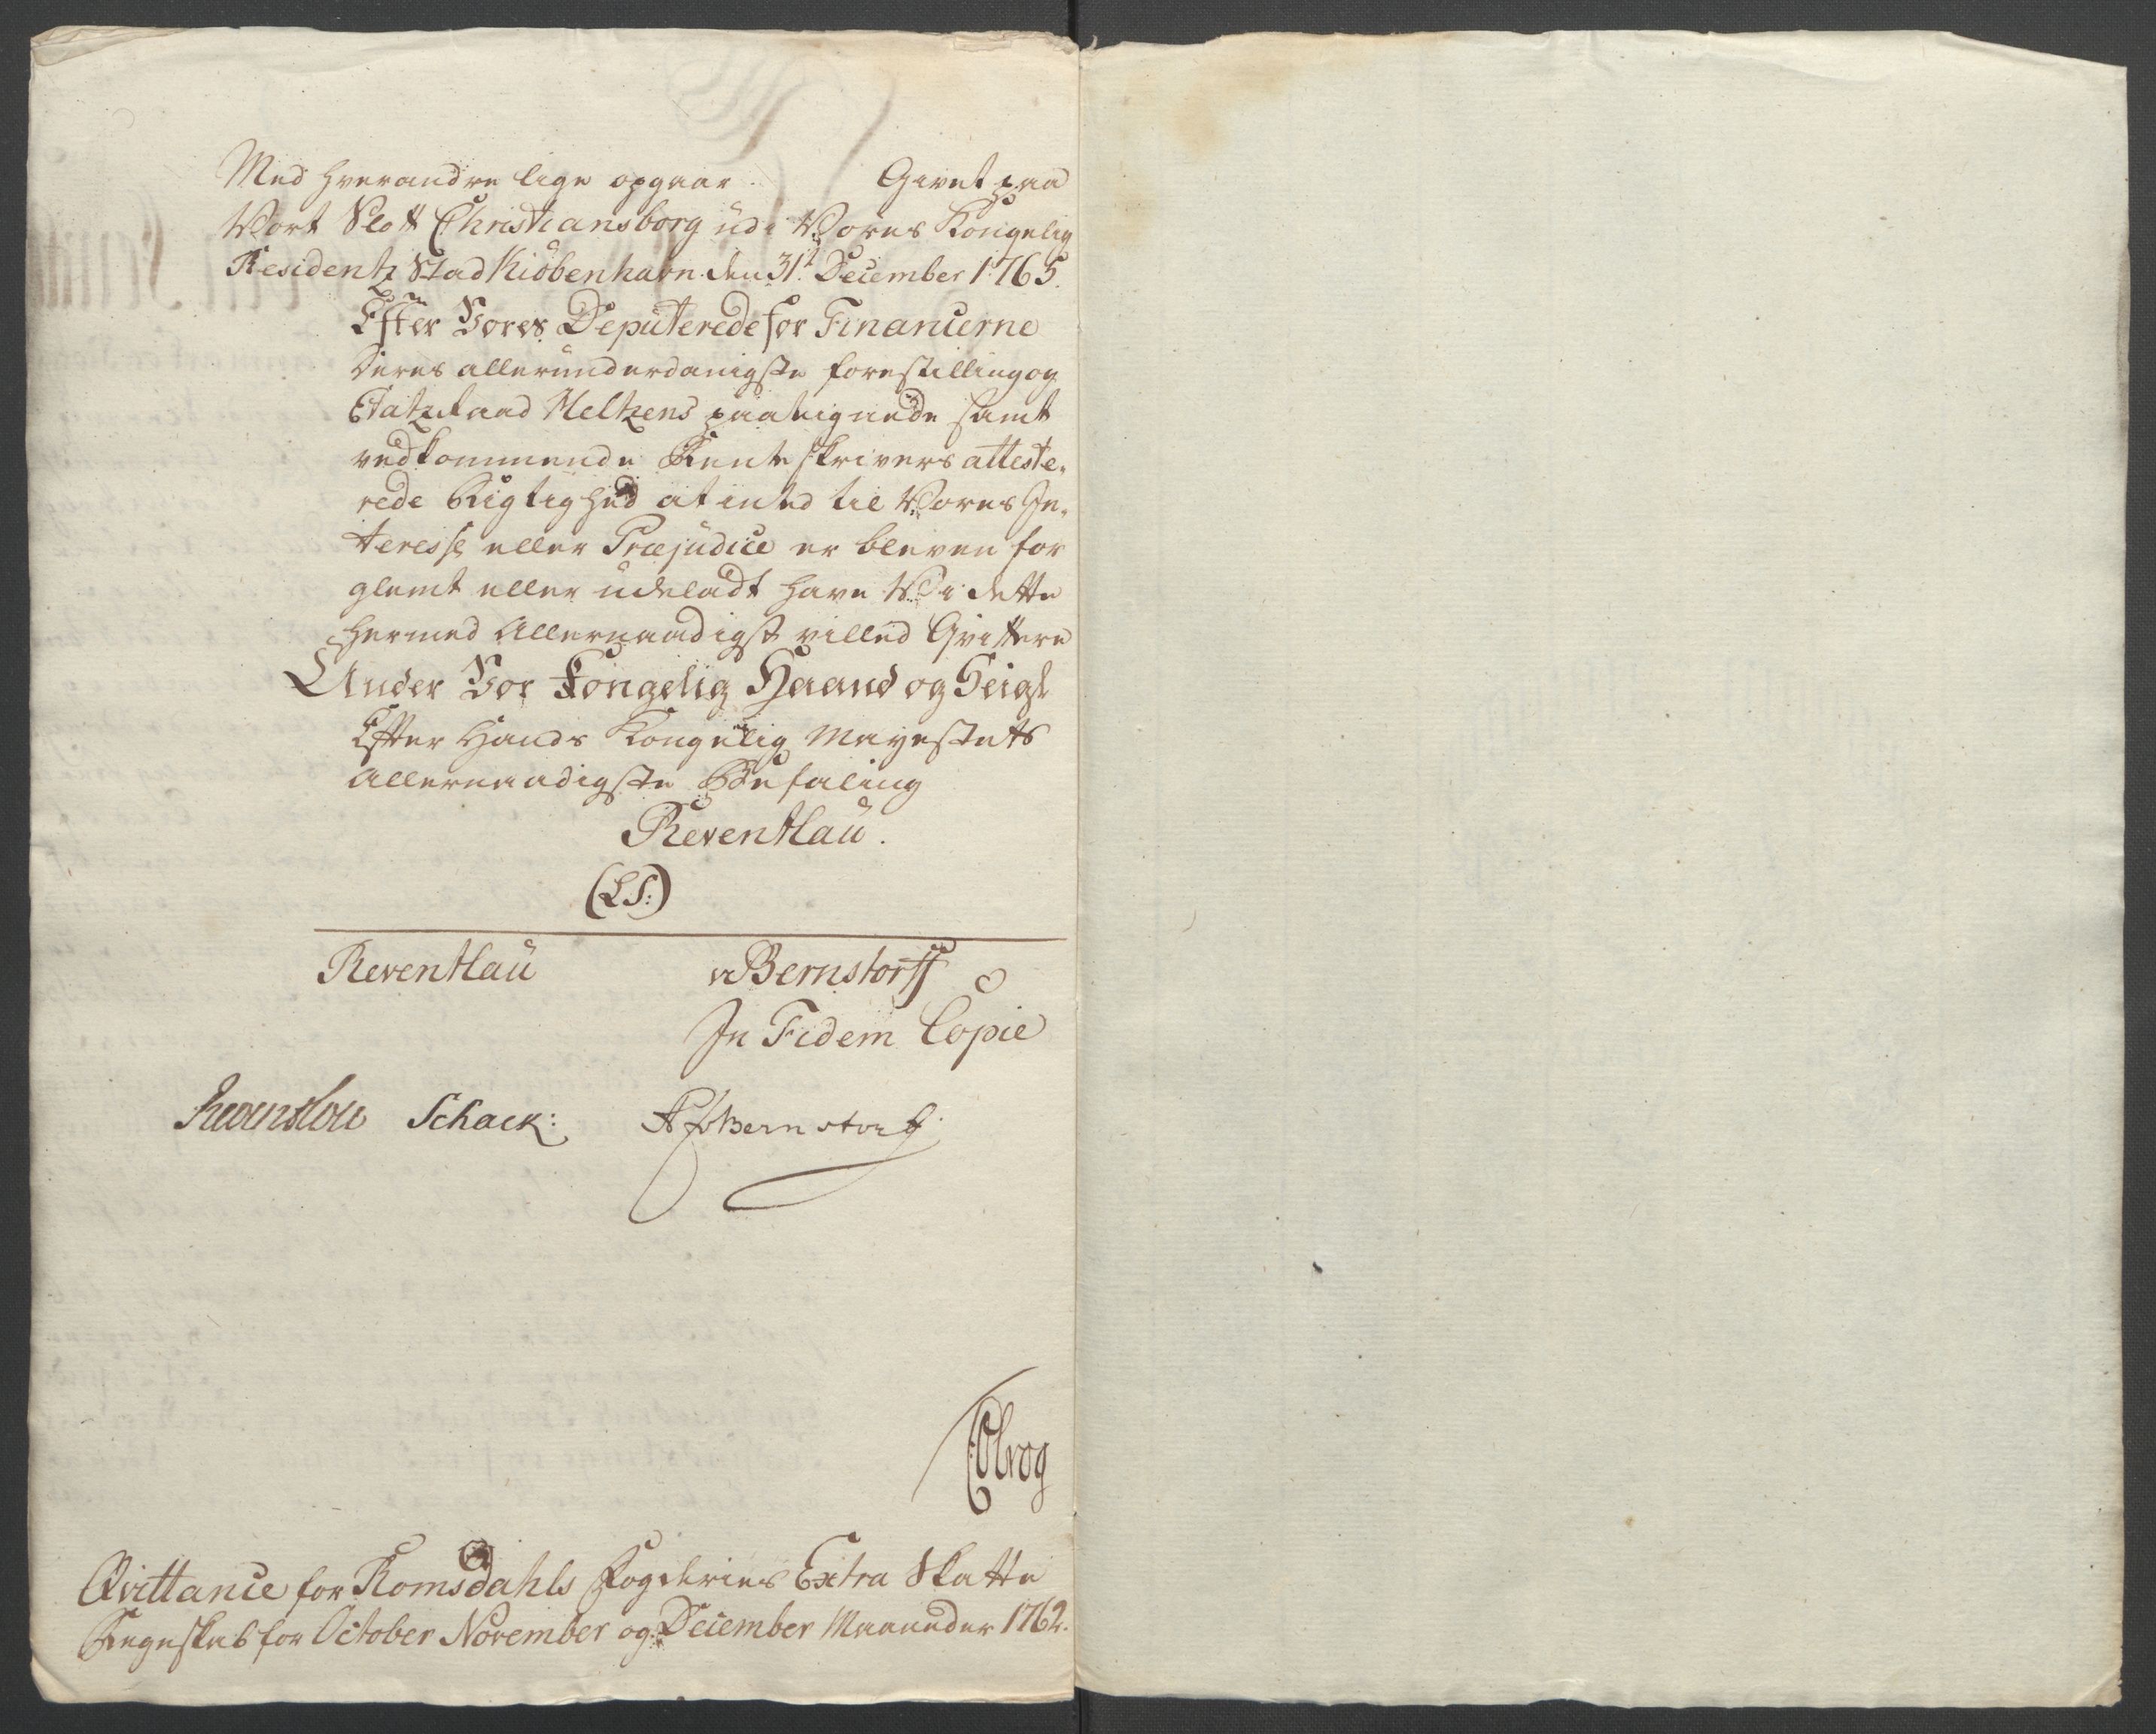 Med hverandre lige opgaar. Givet paa
Vort Slott Christiansborg udi Vores Kongelig
Residentz Stad Kiöbenhavn. den 31t December 1765.
Efter Vores Deputerede for Financerne
Deres allerunderdanigste forestilling og
Etatzraad Heltzens paategnede samt
vedkommende Renteskrivers atteste,,
rede Rigtighed at inted til Vores In,,
teresse eller Præjudice er bleven for
glemt eller udeladt have Vi dette
hermed Allernaadigst villed Qvittere
Under Vor Kongelig Haand og Seigl
Efter Hands Kongelig Mayestets
Allernaadigste Befaling
Reventlau.
(LS:)
Reventlau vBernstorff
In Fidem Copie
Reventlow Schack: APBernstorff
Colrog
Qvittance for Romsdahls Fogderies Extra Skatte
Regnskab for October November og December Maaneder 1762.